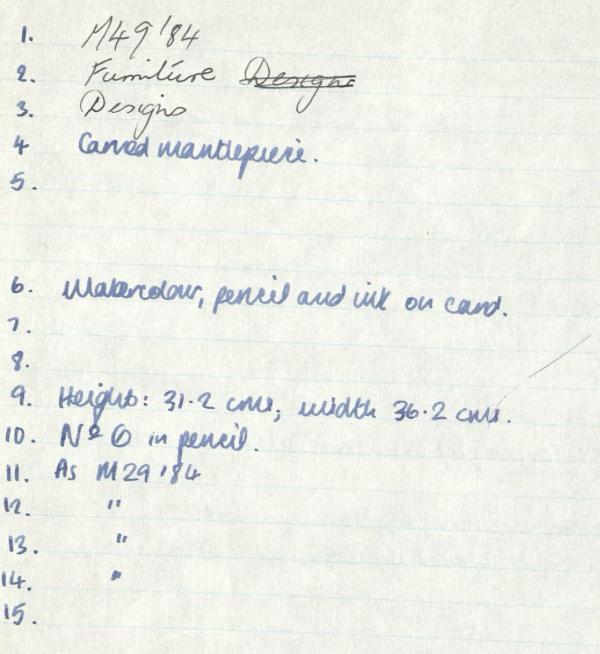 1. M49'84
2. Furniture Designs
3. Designs
4 Carved mantlepiece.
5.
6. Watercolour, pencil and ink on card.
7.
8.
9. Height: 31.2 cms, width 36.2 cms.
10. Nº 6 in pencil.
11. As M29'84
12. "
13. "
14. "
15.